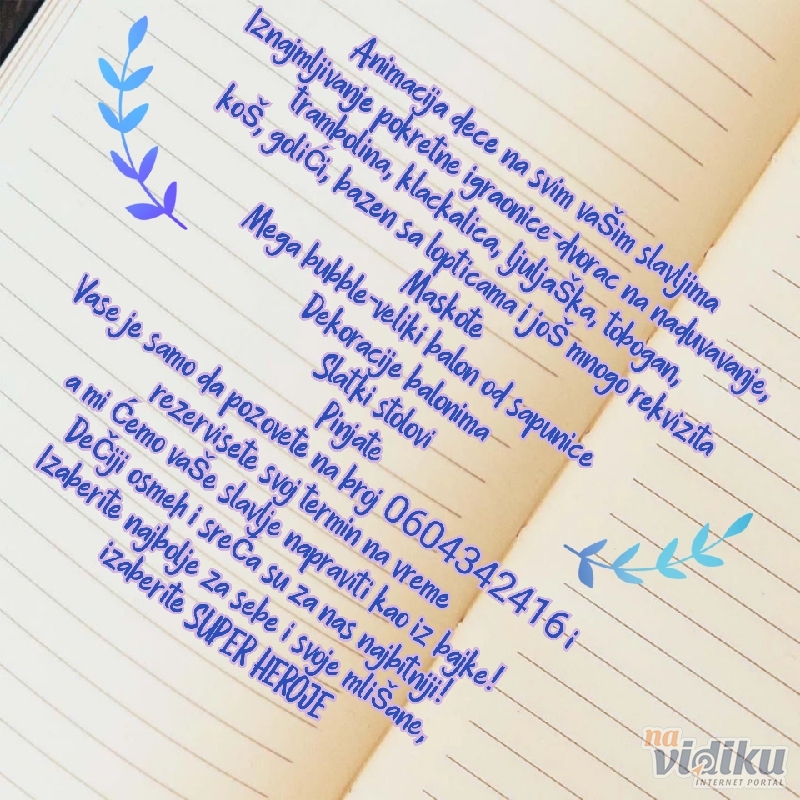 Animacija dece na svim vašim slavljima
Iznajmljivanje pokretne igraonice-dvorac na naduvavanje,
trambolina, klackalica, ljuljaška, tobogan,
koš, golići, bazen sa lopticama i još mnogo rekvizita
Maskote
Mega bubble-veliki balon od sapunice
Dekoracije balonima
Slatki stolovi
Pinjate
Vase je samo da pozovete na broj 0604342416 i
rezervisete svoj termin na vreme
a mi ćemo vaše slavlje napraviti kao iz bajke!
Dečiji osmeh i sreća su za nas najbitniji!
Izaberite najbolje za sebe i svoje mlišane,
izaberite SUPER HEROJE
na vidiku
INTERNET PORTAL